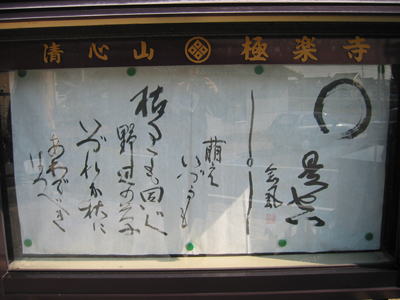 清心山 極楽寺
萌え
いづるも
枯るるも同じ
野辺の草
いづれか秋に
あわで
はつべき